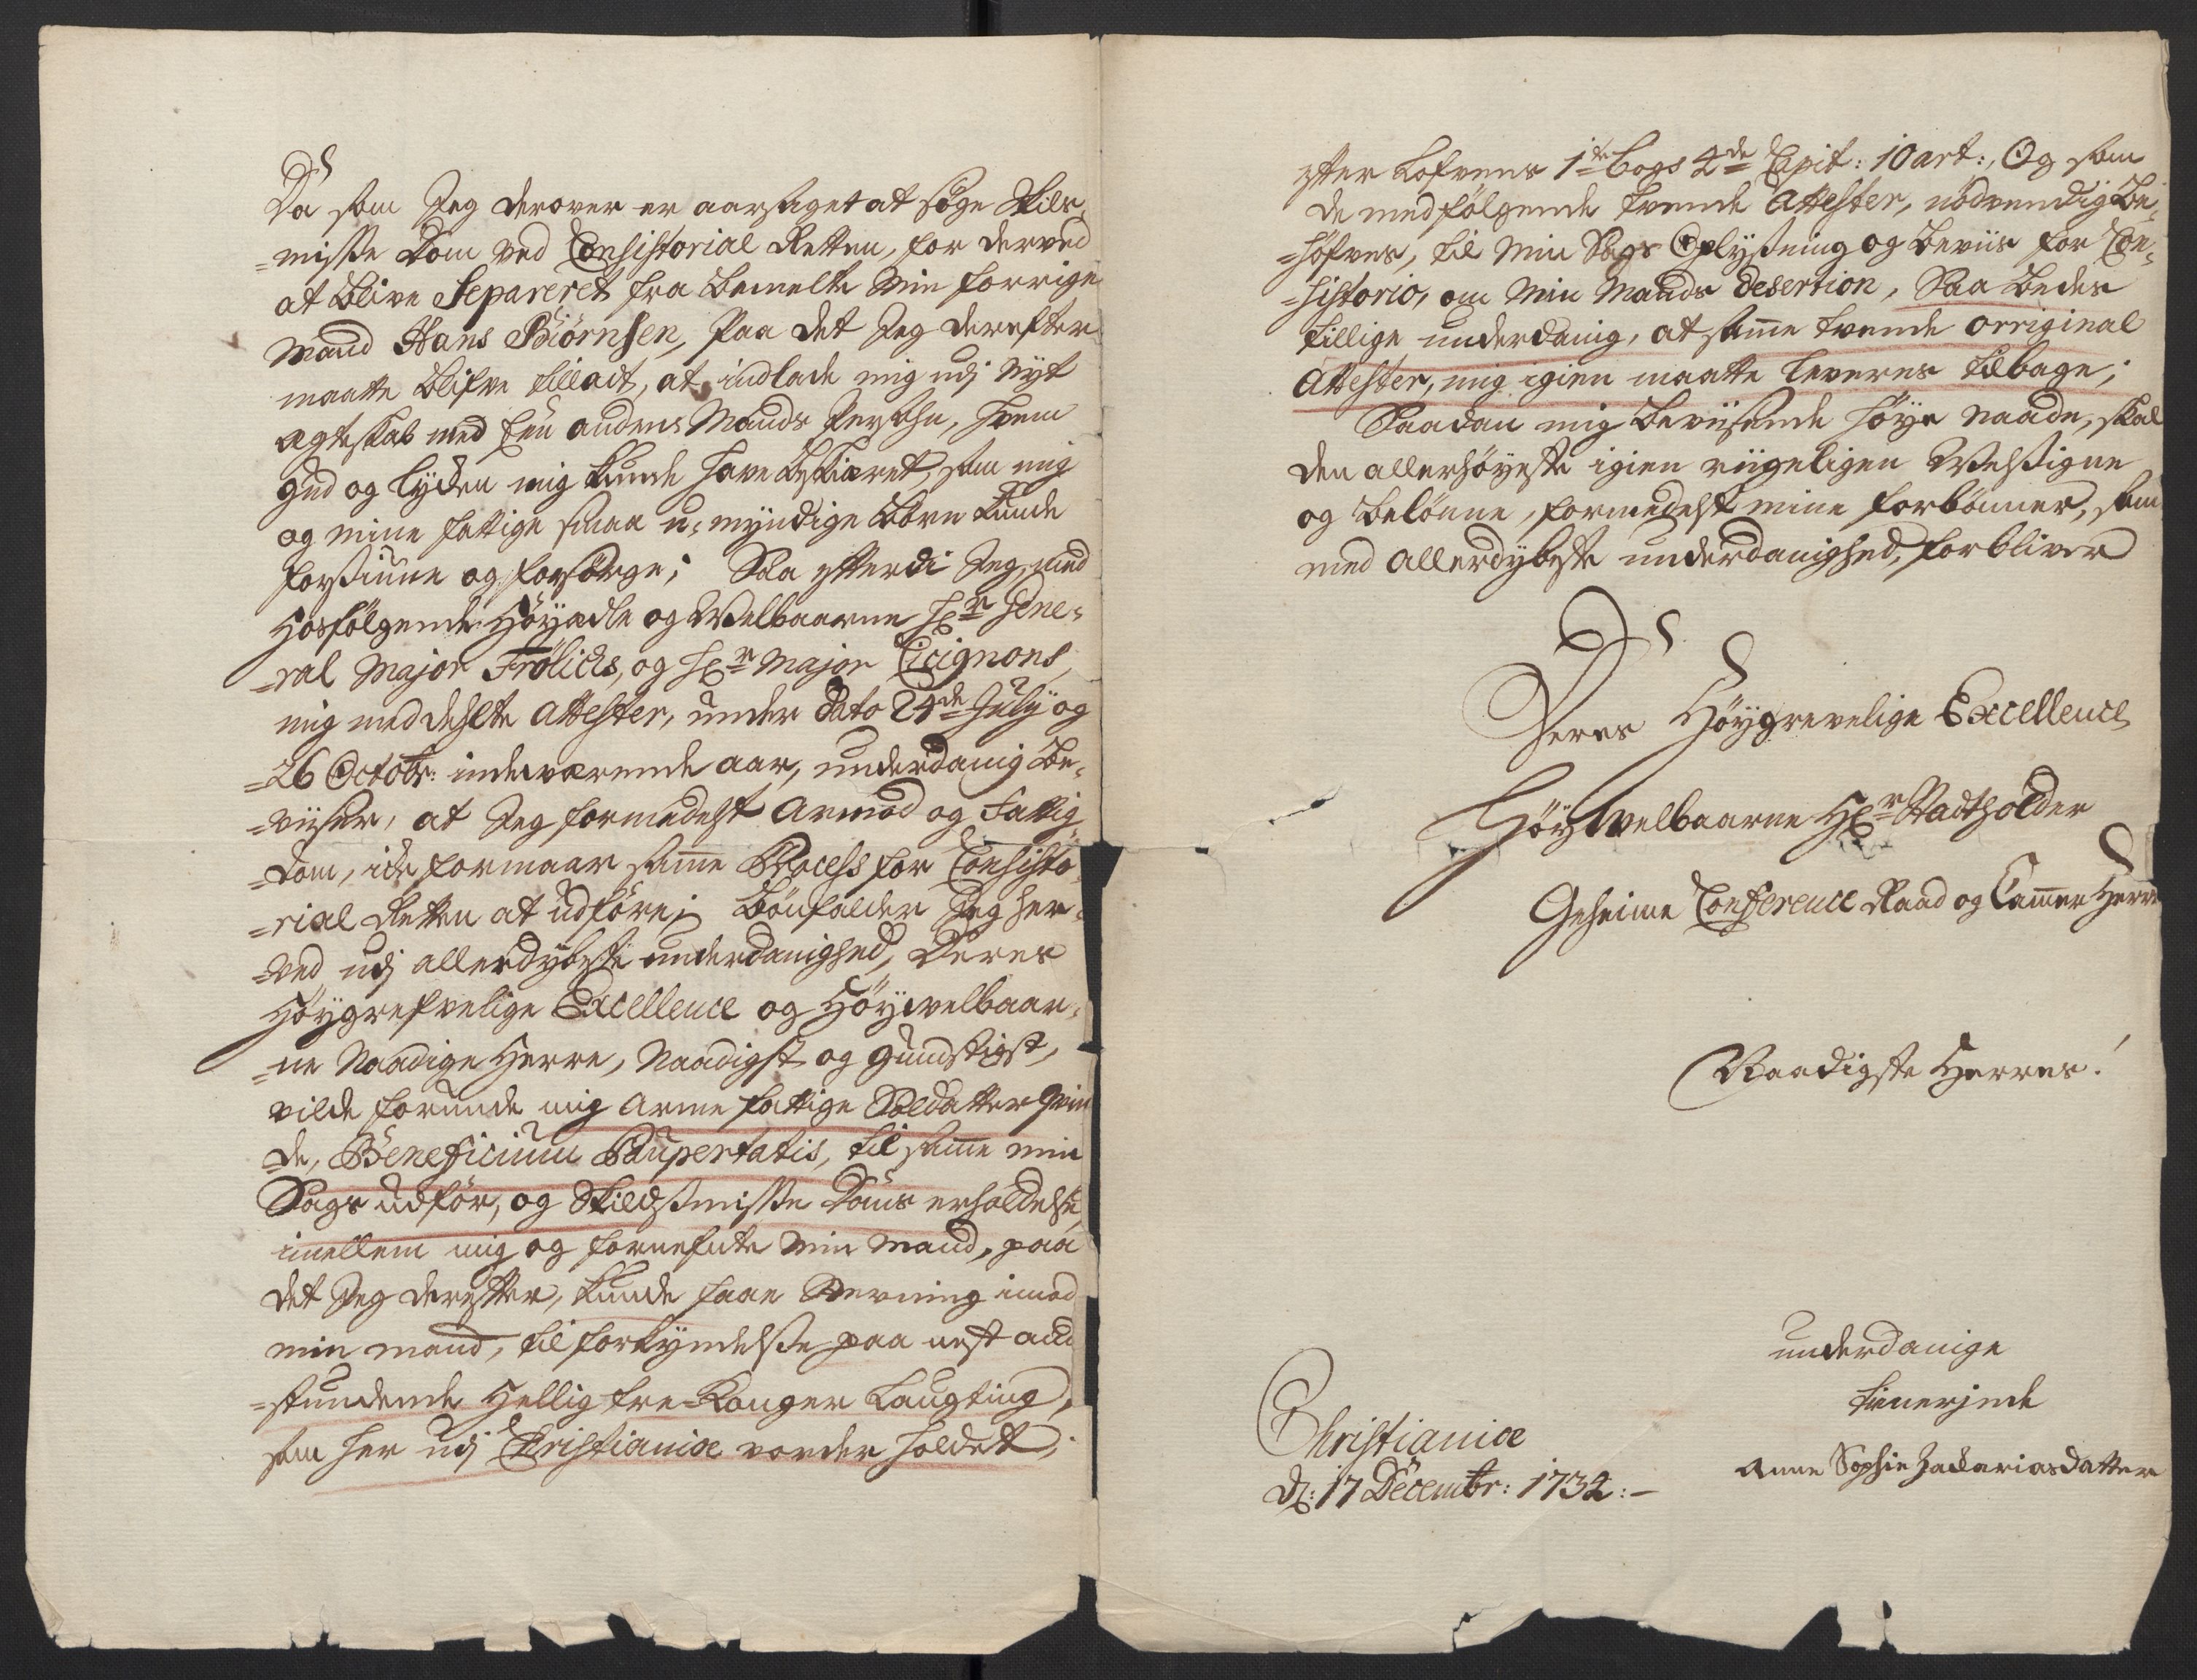 Da som Jeg derover er aarsaget at söge Skils-
=misse Dom ved Consistorial Retten, for derved
at blive Separeret fra bemelte min forrige
Mand Hans Biörnsen, paa det Jeg derefter
maatte blifve tilladt, at indlade mig udj nyt
Ægteskab med Een anden Mands Persohn, hvem
Gud og lyken mig kunde have beskiæret, som mig
og mine fattige smaa u-myndige Börn kunde
forsiune og forsörge; Saa efterdi Jeg, med
hosfölgende Höyædle og Welbaarne Hr Gene-
=ral Major Frölichs, og Hr Major Cicignons,
mig meddehlte Attester, under dato 24de July og
=26 Octobr: indeværende aar, underdanig be-
=viiser, at Jeg formedelst Armod og Fattig
=dom, icke formaar samme Process for Consisto-
=rial Retten at udföre; bönfalder Jeg her-
=ved udj allerdybeste underdanighed, Deres
Höygrefvelige Excellence og Höywelbaar-
=ne Naadige Herre, Naadigst og gunstigst,
vilde forunde mig arme fattige Soldatter Qvin
=de, Beneficium Paupertatis, til samme min
Sags udför, og Skildsmisse Doms erholdelse,
imellem mig og fornefnte min Mand, paa
det Jeg derefter, kunde faae Stevning imod
min mand, til forkyndelse paa nest an
=stundende Hellig tre-Konger Laugting,
som her udj Christianiæ vorder holdet,
efter Lofvens 1te bogs 4de Capit: 10 art:, Og som
de medfölgende tvende Attester, nödvendig be-
=höfves, til min Sags Oplysning og beviis for Con-
=sistorio, om min Mands desertion, Saa bedes
tillige underdanig, at samme tvende original
Attester, mig igien maatte leveres tilbage;
Saadan mig beviisende höye naade, skal
den allerhöyeste igien riigeligen Velsigne
og belönne, formedelst mine forbönner, som
med allerdybeste underdanighed, forbliver
Deres Höygrevelige Excellence
Höy Welbaarne Hr Stadtholder
Geheime Conference Raad og Cammer Herre
Naadigste Herres!
underdanige
tienerjnde
Anne Sophie Zachariasdatter
Christianiæ
d: 17 Decembr: 1734:-